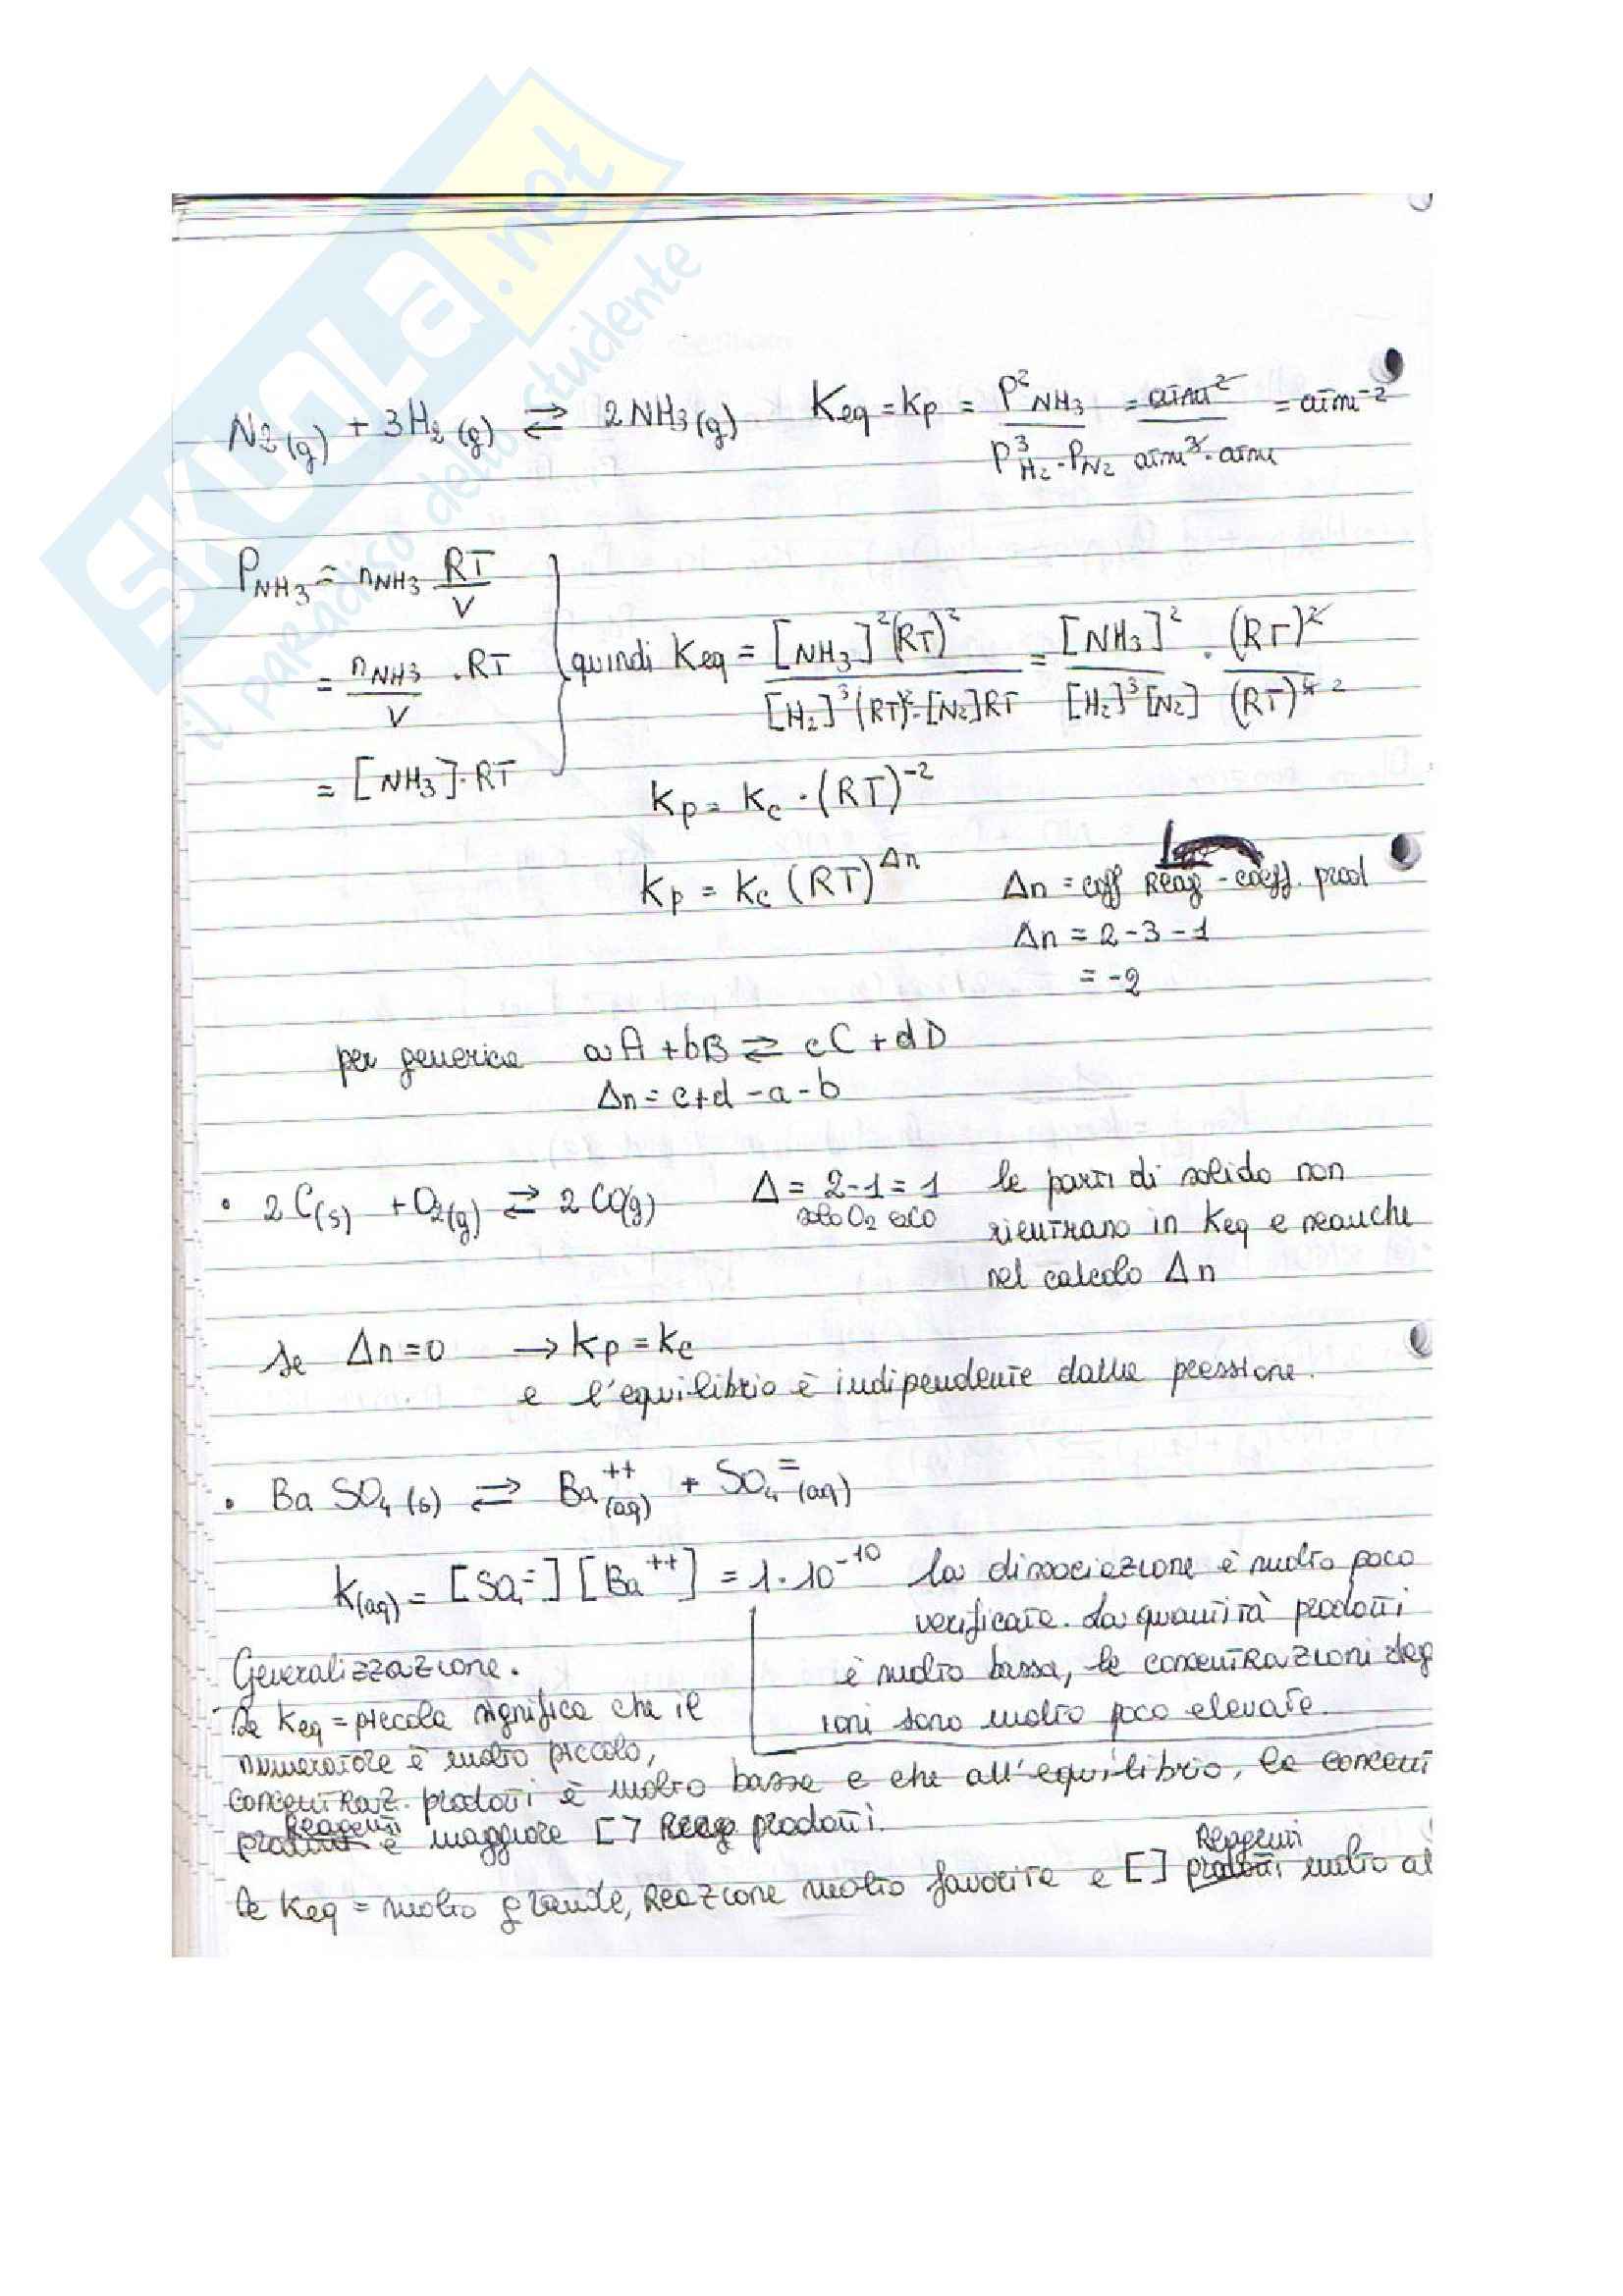 SKUOLA.net
il paradiso dello studente
N2(g) + 3H2(g) ⇄ 2NH3(g) Keq = Kp = P²NH3 / P³H2 · PN2 = atm² / atm³ · atm = atm⁻²
PNH3 = nNH3 RT/V
= nNH3/V · RT
= [NH3] · RT
quindi Keq = [NH3]²(RT)² / [H2]³(RT)³ · [N2]RT = [NH3]² / [H2]³[N2] · (RT)² / (RT)⁴ ²
Kp = Kc · (RT)⁻²
Kp = Kc (RT)^Δn Δn = coff Reag - coeff. prod
Δn = 2 - 3 - 1
= -2
per generica aA + bB ⇄ cC + dD
Δn = c+d - a - b
• 2C(s) + O2(g) ⇄ 2CO(g) Δ = 2-1 = 1 le parti di solido non
solo O2 e CO rientrano in Keq e neanche
nel calcolo Δn
se Δn = 0 → Kp = Kc
e l'equilibrio è indipendente dalla pressione.
• BaSO4(s) ⇄ Ba⁺⁺(aq) + SO4⁼(aq)
K(aq) = [SO4⁼][Ba⁺⁺] = 1·10⁻¹⁰ la dissociazione è molto poco
verificata. La quantità prodotti
è molto bassa, le concentrazioni deg
ioni sono molto poco elevate.
Generalizzazione.
Se Keq = piccola significa che il
numeratore è molto piccolo,
concentraz. prodotti è molto bassa e che all'equilibrio, la concent
Reagenti
prodotti è maggiore [] Reag prodotti.
Reagenti
Se Keq = molto grande, Reazione molto favorita e [] prodotti molto al